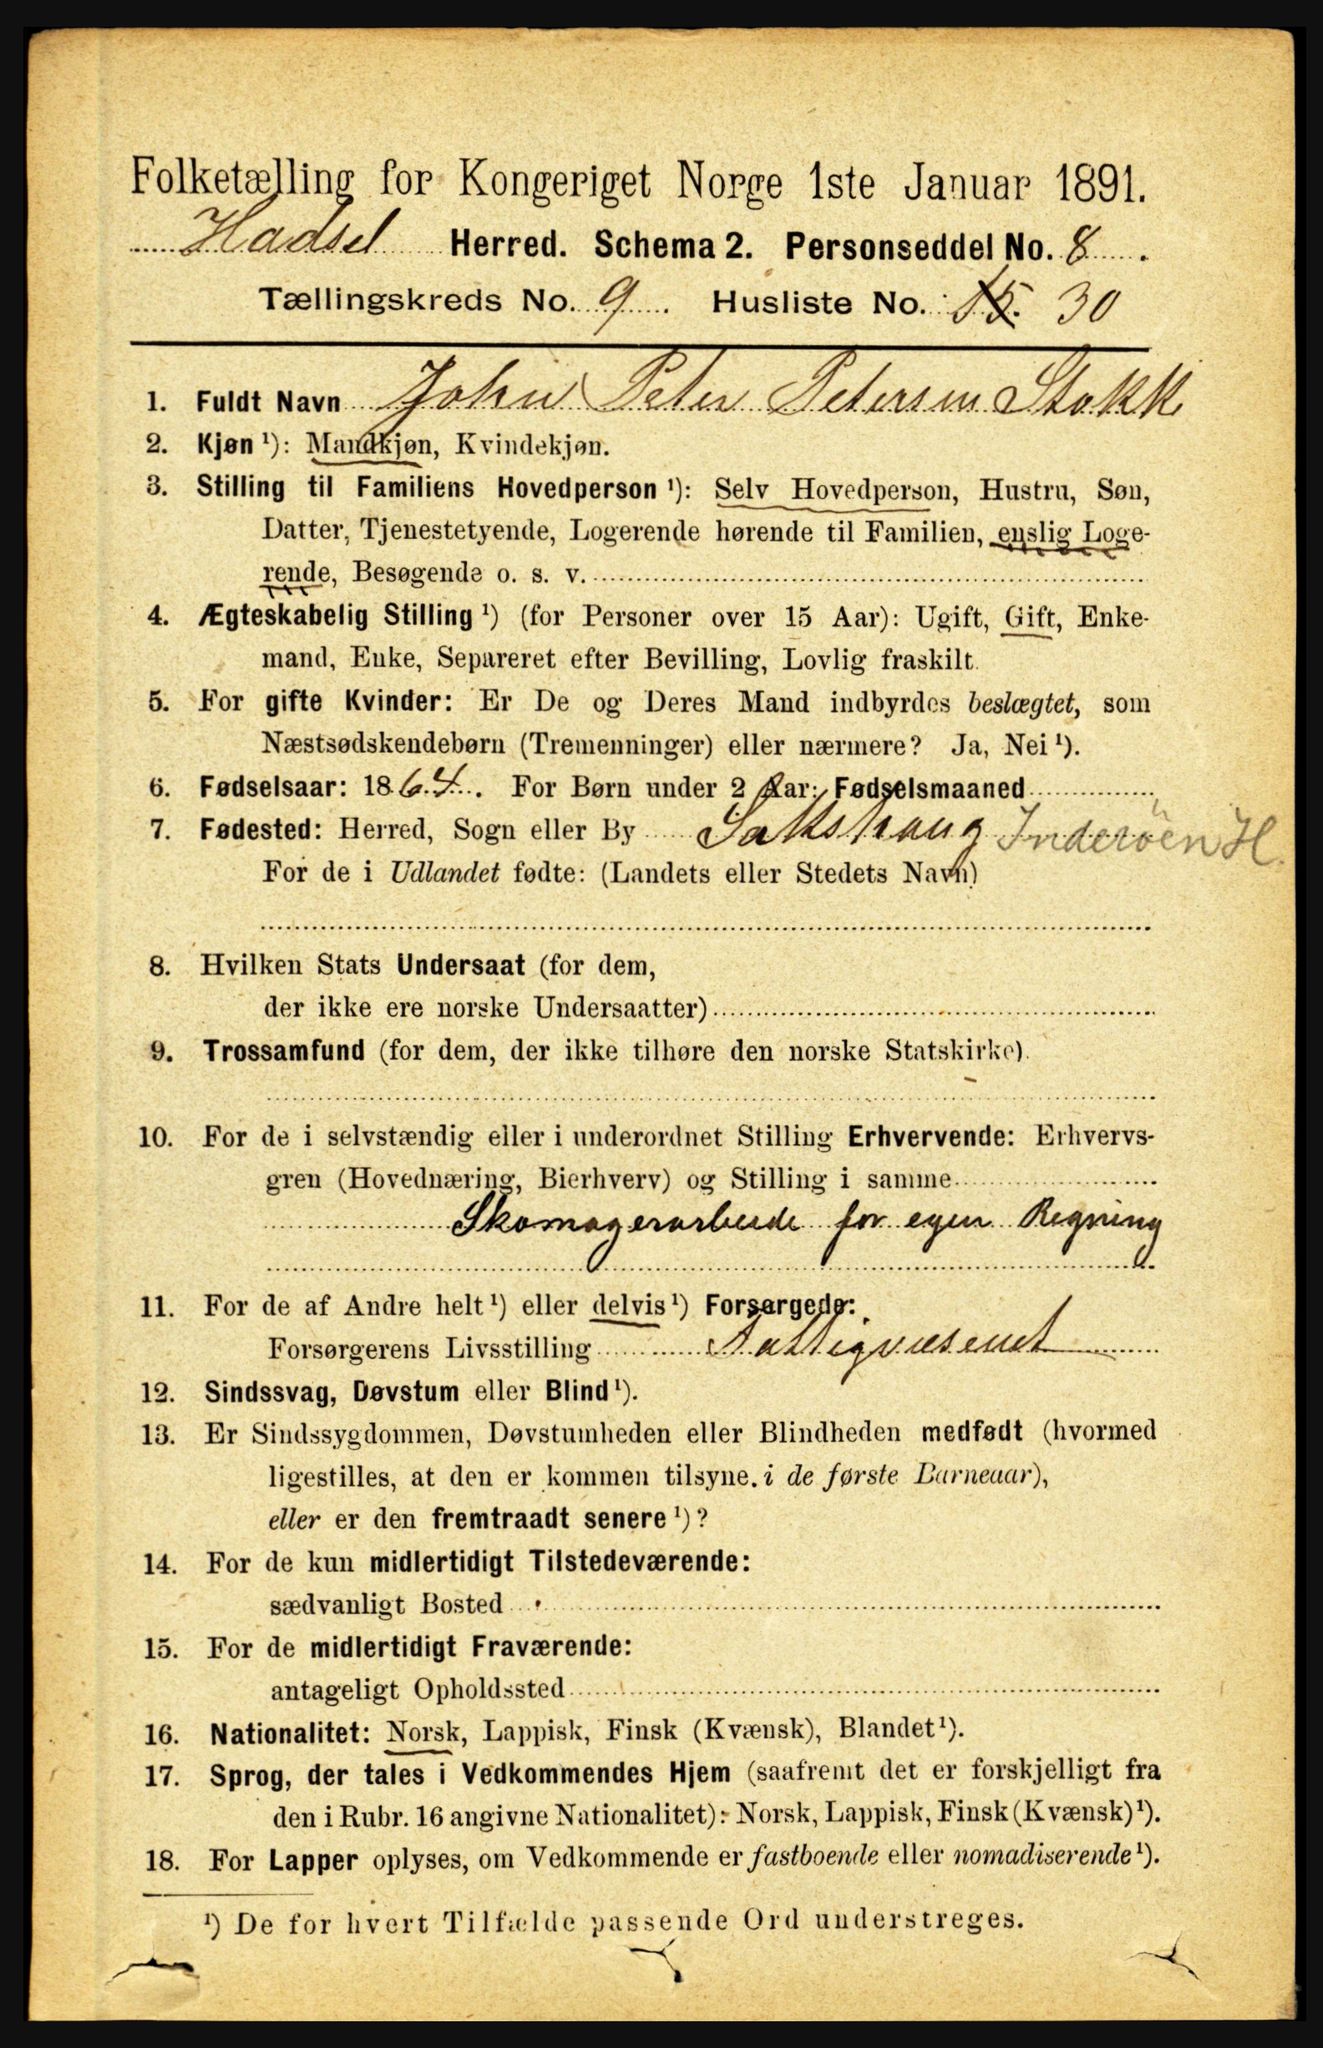 Folketælling for Kongeriget Norge 1ste Januar 1891.
Hadsel Herred. Schema 2. Personseddel No. 8.
Tællingskreds No. 9. Husliste No. 15. 30
1. Fuldt Navn John Peter Petersen Stokk
2. Kjøn ¹): Mandkjøn, Kvindekjøn.
3. Stilling til Familiens Hovedperson ¹): Selv Hovedperson, Hustru, Søn,
Datter, Tjenestetyende, Logerende hørende til Familien, enslig Loge-
rende, Besøgende o. s. v.
4. Ægteskabelig Stilling ¹) (for Personer over 15 Aar): Ugift, Gift, Enke-
mand, Enke, Separeret efter Bevilling, Lovlig fraskilt.
5. For gifte Kvinder: Er De og Deres Mand indbyrdes beslægtet, som
Næstsødskendebørn (Tremenninger) eller nærmere? Ja, Nei ¹).
6. Fødselsaar: 1864. For Børn under 2 Aar: Fødselsmaaned
7. Fødested: Herred, Sogn eller By Sakshaug Inderøen H.
For de i Udlandet fødte: (Landets eller Stedets Navn)
8. Hvilken Stats Undersaat (for dem,
der ikke ere norske Undersaatter)
9. Trossamfund (for dem, der ikke tilhøre den norske Statskirke).
10. For de i selvstændig eller i underordnet Stilling Erhvervende: Erhvervs-
gren (Hovednæring, Bierhverv) og Stilling i samme
Skomagerarbeide for egen Regning
11. For de af Andre helt ¹) eller delvis ¹) Forsørgede:
Forsørgerens Livsstilling Fattigvæsenet
12. Sindssvag, Døvstum eller Blind ¹).
13. Er Sindssygdommen, Døvstumheden eller Blindheden medfødt (hvormed
ligestilles, at den er kommen tilsyne i de første Barneaar),
eller er den fremtraadt senere ¹)?
14. For de kun midlertidigt Tilstedeværende:
sædvanligt Bosted
15. For de midlertidigt Fraværende:
antageligt Opholdssted
16. Nationalitet: Norsk, Lappisk, Finsk (Kvænsk), Blandet ¹).
17. Sprog, der tales i Vedkommendes Hjem (saafremt det er forskjelligt fra
den i Rubr. 16 angivne Nationalitet): Norsk, Lappisk, Finsk (Kvænsk) ¹).
18. For Lapper oplyses, om Vedkommende er fastboende eller nomadiserende ¹).
¹) De for hvert Tilfælde passende Ord understreges.